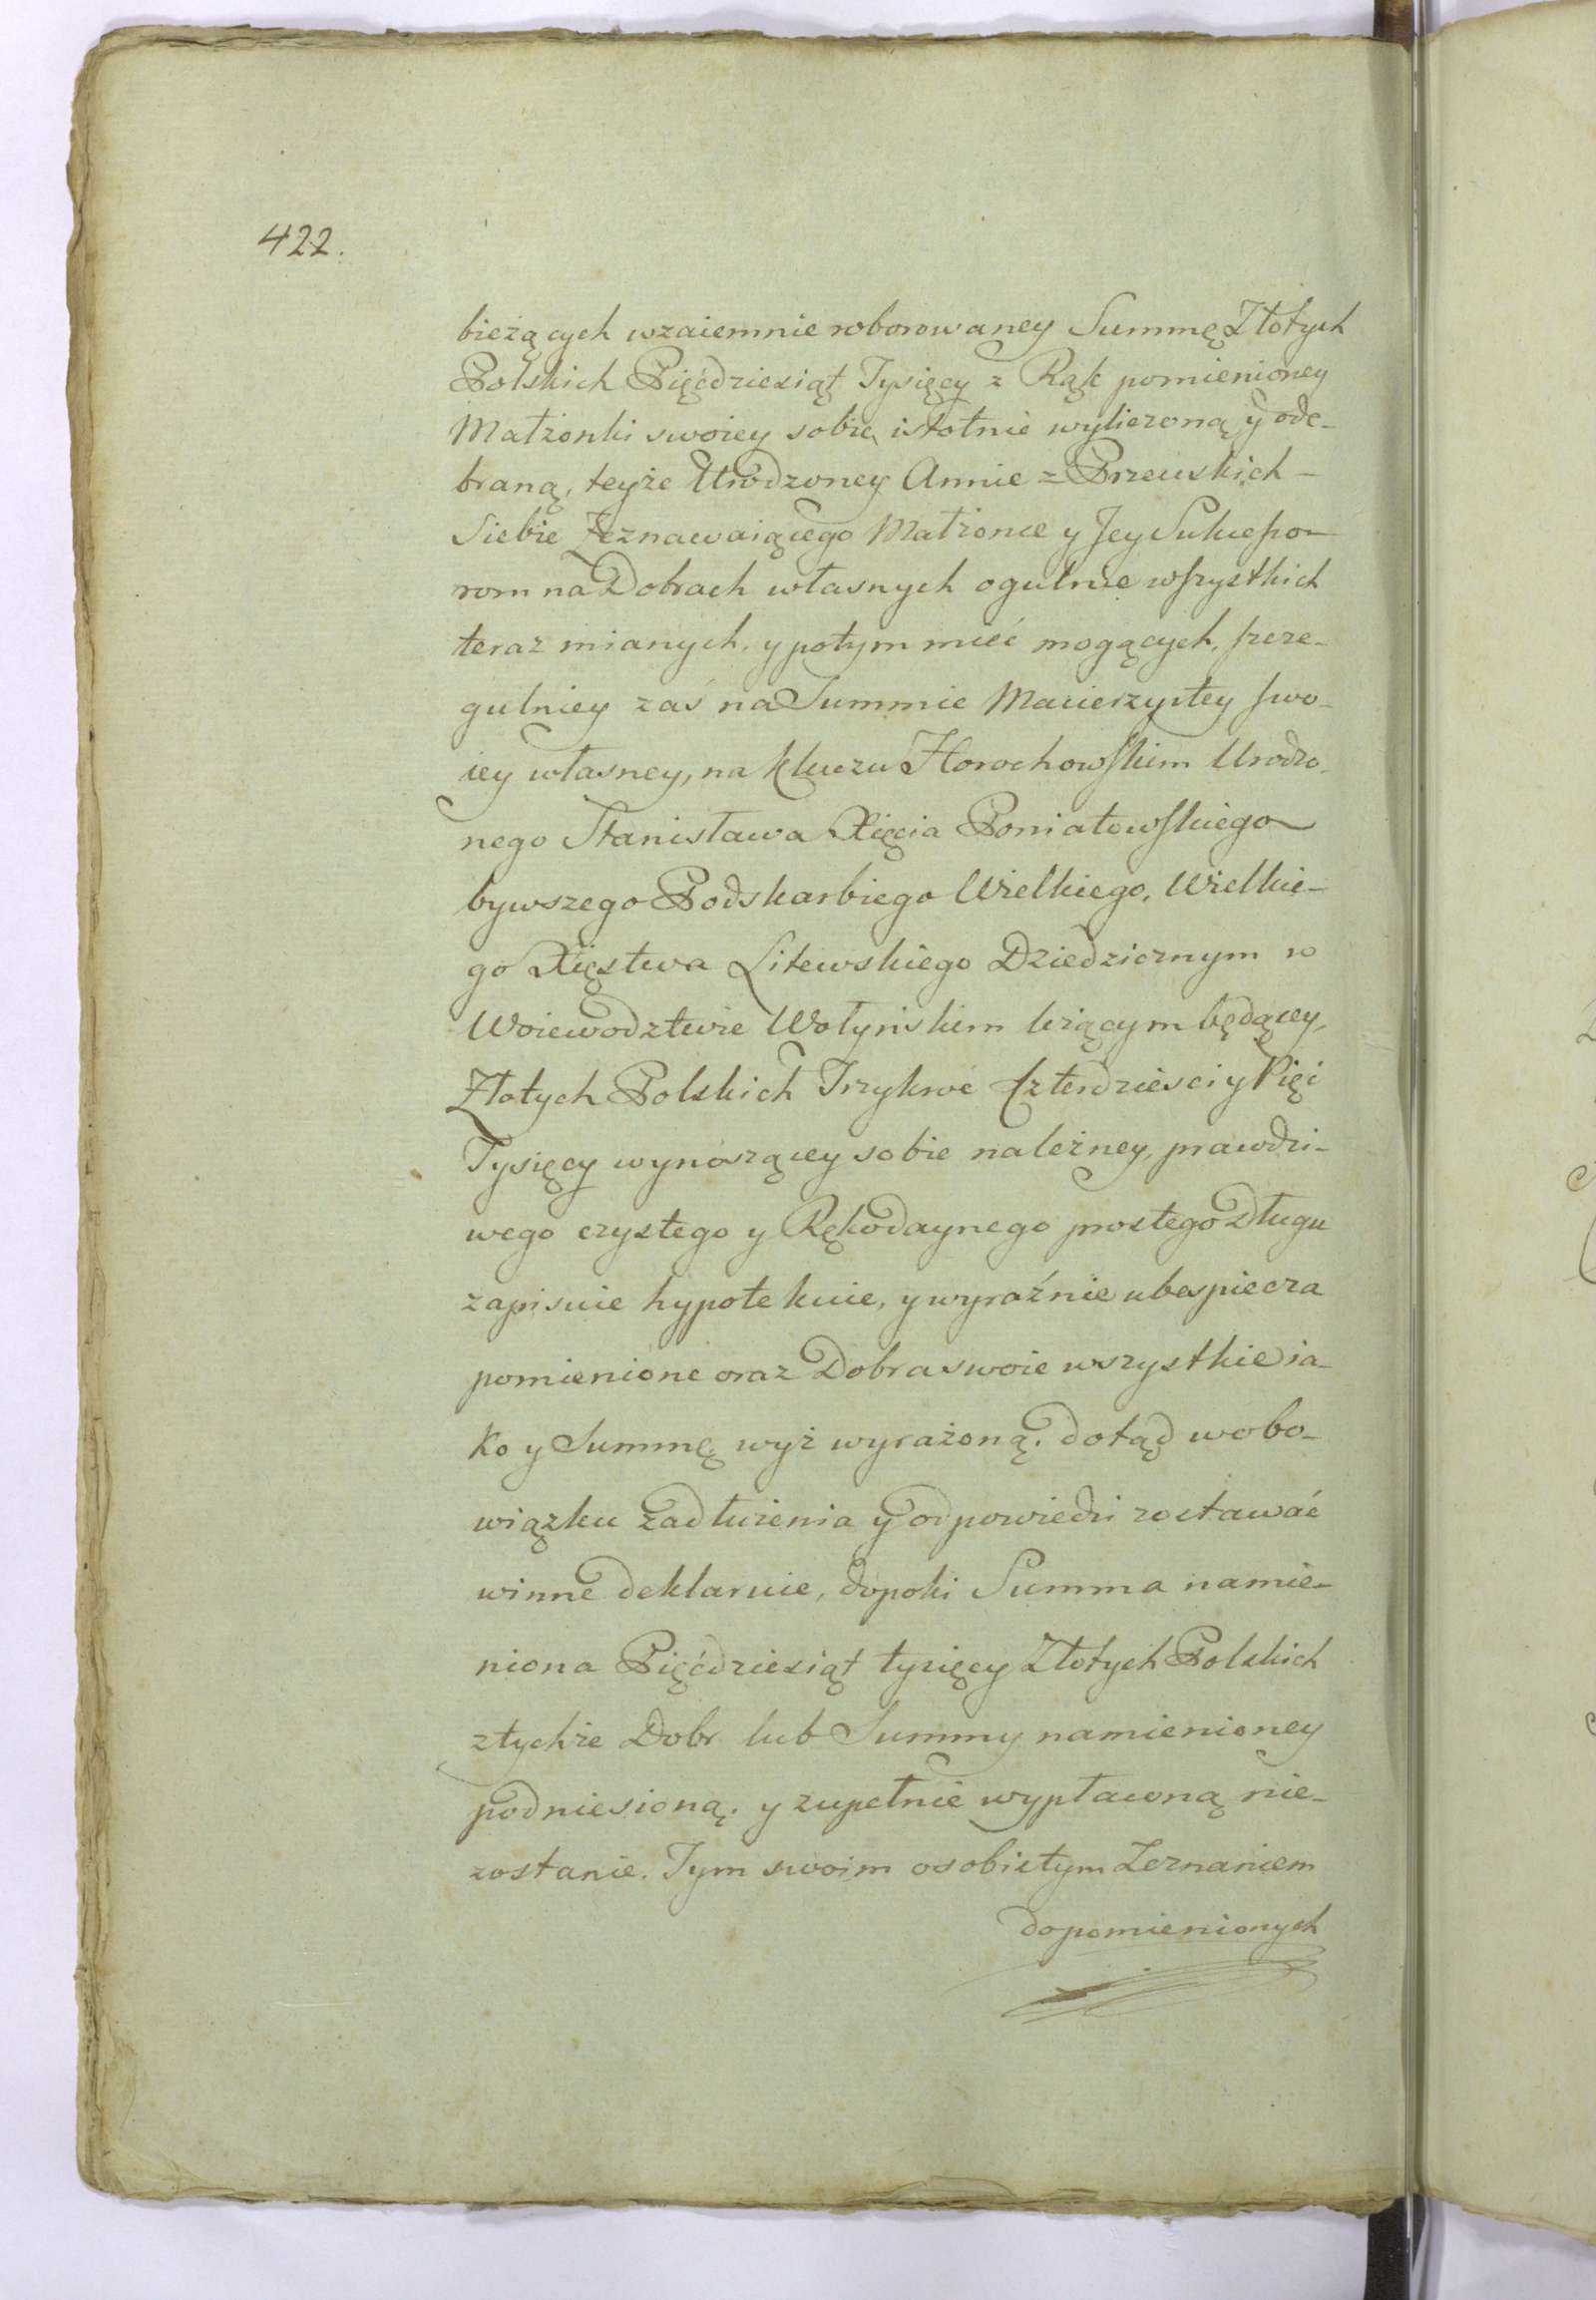 422.
bieżących wzaiemnie roborowaney Summę Złotych
Polskich Pięćdziesiąt Tysięcy z Rąk pomienioney
Małżonki swoiey sobie istotnie wyliczoną y ode-
braną, teyże Urodzoney Annie z Brzeuskich -
Siebie Zeznawaiącego Małżonce y Jey Sukcesso-
rom na Dobrach własnych ogulnie wszystkich
teraz mianych, y potym mieć mogących, szcze-
gulniey zaś na Summie Macierzystey swo-
iey własney, na Kluczu Horochowskim Urodzo-
nego Stanisława Xięcia Poniatowskiego
bywszego Podskarbiego Wielkiego, Wielkie-
go Xięstwa Litewskiego Dziedzicznym w
Woiewodztwie Wołyńskim leżącym będącey,
Złotych Polskich Trzykroć Czterdzieści y Pięć
Tysięcy wynoszącey sobie należney, prawdzi-
wego czystego y Rękodaynego prostego Długu
zapisuie hypotekuie, y wyraźnie ubespiecza
pomienione oraz Dobra swoie wszystkie ia-
ko y Summę wyż wyrażoną. dotąd w obo-
wiązku zadłużenia y odpowiedzi zostawać
winne deklaruie, dopoki Summa namie-
niona Pięćdziesiąt tysięcy Złotych Polskich
z tychże Dobr lub Summy namienioney
podniesioną. y zupełnie wypłaconą nie-
zostanie. Tym swoim osobistym Zeznaniem
do pomienionych